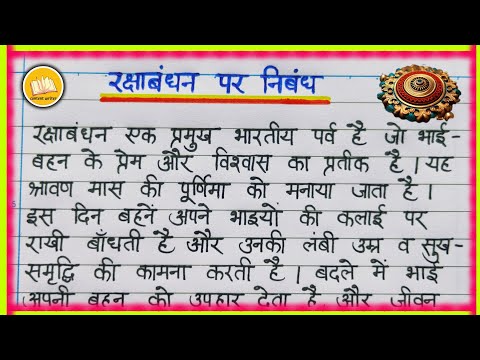 रक्षाबंधन पर निबंध
रक्षाबंधन एक प्रमुख भारतीय पर्व है जो भाई-
बहन के प्रेम और विश्वास का प्रतीक है । यह
श्रावण मास की पूर्णिमा को मनाया जाता है ।
इस दिन बहनें अपने भाइयों की कलाई पर
राखी बाँधती है और उनकी लंबी उम्र व सुख-
समृद्धि की कामना करती है । बदले में भाई
अपनी बहन को उपहार देता है और जीवन